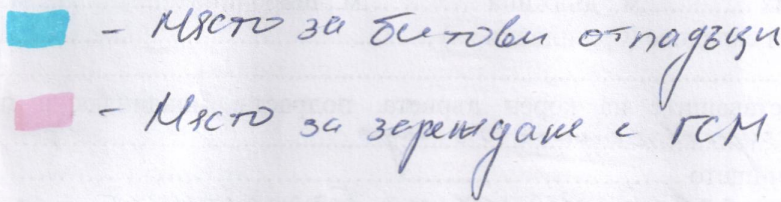 - Място за битови отпадъци
- Място за зареждане с ГСМ